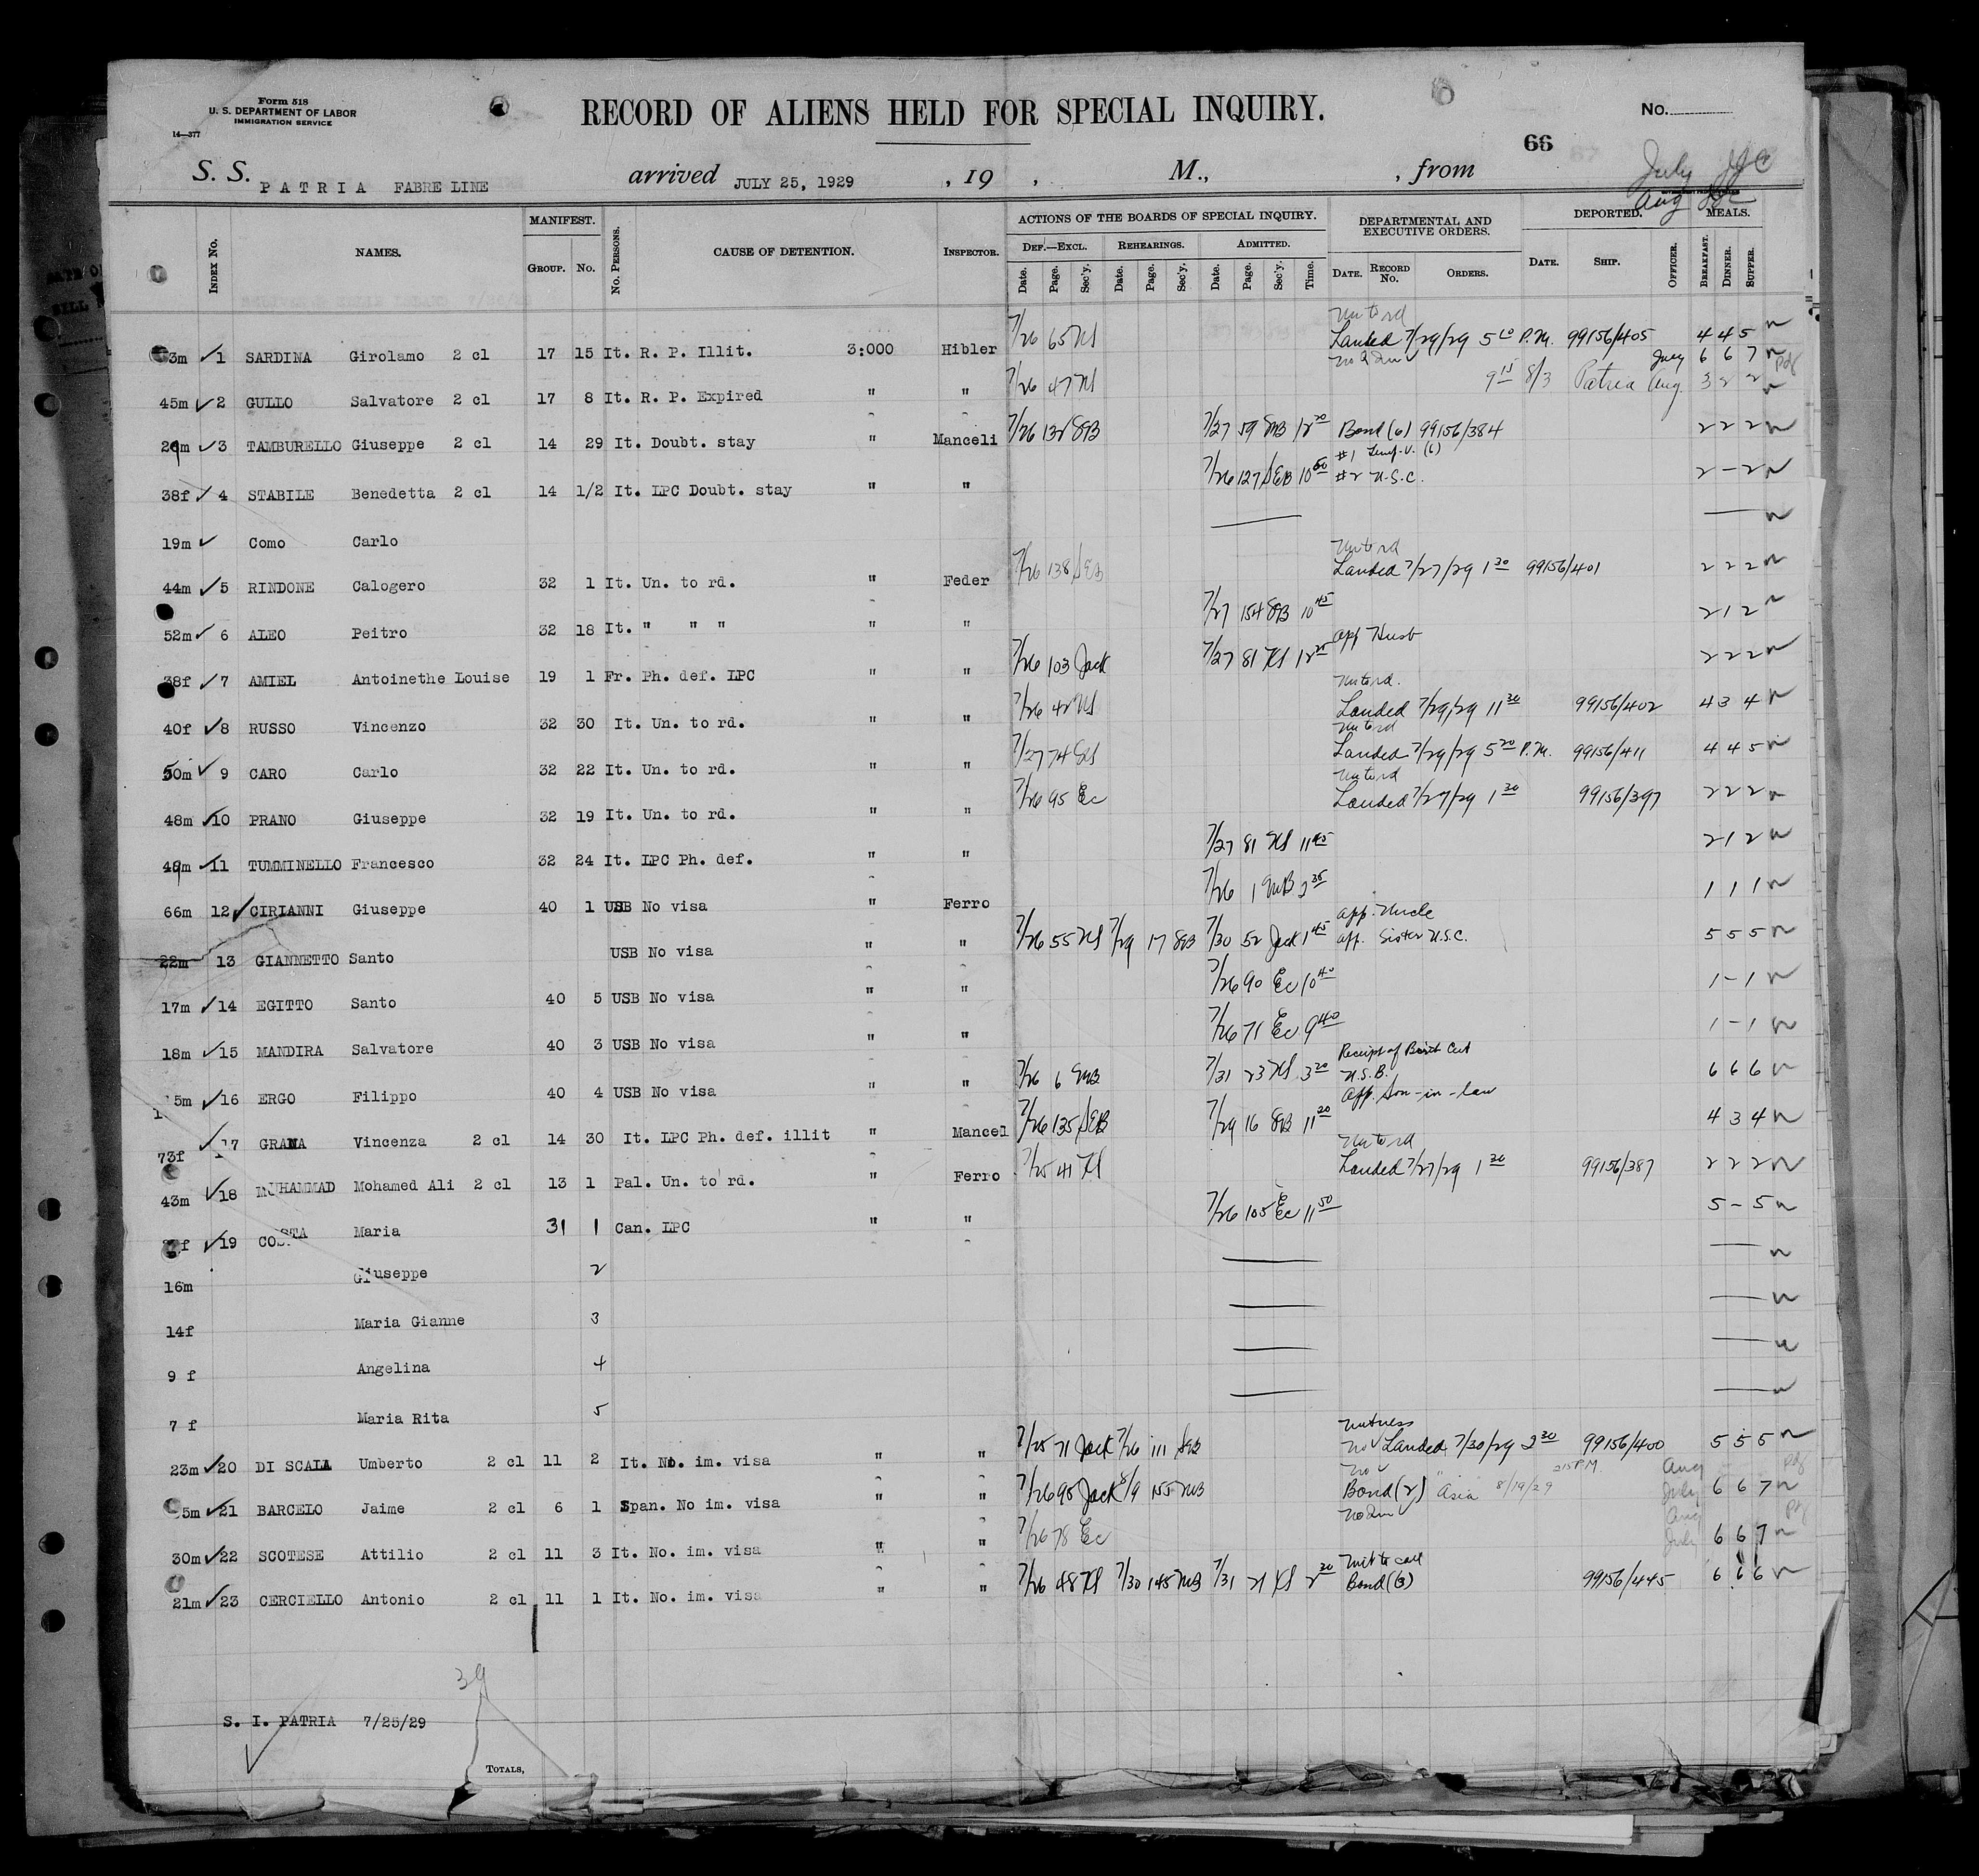 Form 518
U. S. DEPARTMENT OF LABOR
IMMIGRATION SERVICE
14—377
RECORD OF ALIENS HELD FOR SPECIAL INQUIRY.
No.
66
S. S. PATRIA FABRE LINE arrived JULY 25, 1929 , 19 , M., , from
July
Aug
Index No. NAMES. MANIFEST. GROUP. No. No. PERSONS. CAUSE OF DETENTION. INSPECTOR. ACTIONS OF THE BOARDS OF SPECIAL INQUIRY. DEF.—EXCL. REHEARINGS. ADMITTED. Date. Page. Sec'y. Date. Page. Sec'y. Date. Page. Sec'y. Time. DEPARTMENTAL AND EXECUTIVE ORDERS. DATE. RECORD No. ORDERS. DEPORTED. DATE. SHIP. OFFICER. MEALS. BREAKFAST. DINNER. SUPPER.
3m 1 SARDINA Girolamo 2 cl 17 15 It. R. P. Illit. 3:000 Hibler 7/26 65 KS Landed 7/29/29 5 10 P.M. 99156/405 4 4 5
45m 2 GULLO Salvatore 2 cl 17 8 It. R. P. Expired " " 7/26 47 KS 9 15 8/3 Patria July 6 6 7 Aug. 3 2 2
29m 3 TAMBURELLO Giuseppe 2 cl 14 29 It. Doubt. stay " Manceli 7/26 132 7/27 59 12 20 Bond (6) 99156/384 2 2 2
38f 4 STABILE Benedetta 2 cl 14 1/2 It. LPC Doubt. stay " " 7/26 127 SEB 10 50 #1 Temp. V. (6) #2 U.S.C. 2 - 2
19m Como Carlo
44m 5 RINDONE Calogero 32 1 It. Un. to rd. " Feder 7/26 138 SEB Landed 7/27/29 1 30 99156/401 2 2 2
52m 6 ALEO Peitro 32 18 It. " " " " " 7/27 154 10 45 2 1 2
38f 7 AMIEL Antoinethe Louise 19 1 Fr. Ph. def. LPC " " 7/26 103 Jack 7/27 81 KS App Husb 2 2 2
40f 8 RUSSO Vincenzo 32 30 It. Un. to rd. " " 7/26 42 KS Landed 7/29/29 11 30 99156/402 4 3 4
50m 9 CARO Carlo 32 22 It. Un. to rd. " " 7/27 74 Landed 7/29/29 5 20 P.M. 99156/411 4 4 5
48m 10 PRANO Giuseppe 32 19 It. Un. to rd. " " 7/26 95 Ec Landed 7/27/29 1 30 99156/397 2 2 2
49m 11 TUMMINELLO Francesco 32 24 It. LPC Ph. def. " " 7/27 81 KS 11 45 2 1 2
66m 12 CIRIANNI Giuseppe 40 1 USB No visa " Ferro 7/26 1 1 1 1
22m 13 GIANNETTO Santo USB No visa " " 7/26 55 KS 7/29 17 7/30 52 Jack 1 45 app. Uncle aff. Sister U.S.C. 5 5 5
17m 14 EGITTO Santo 40 5 USB No visa " " 7/26 90 Ec 10 40 1 - 1
18m 15 MANDIRA Salvatore 40 3 USB No visa " " 7/26 71 Ec 9 40 1 - 1
15m 16 ERGO Filippo 40 4 USB No visa " " 7/26 6 7/31 23 KS 3 20 Receipt of Birth Cert U.S.B. 6 6 6
73f 17 GRANA Vincenza 2 cl 14 30 It. LPC Ph. def. illit " Mancel 7/26 135 SEB 7/29 16 11 20 App. Son-in-law 4 3 4
43m 18 MUHAMMAD Mohamed Ali 2 cl 13 1 Pal. Un. to rd. " Ferro 7/25 41 KS Landed 7/27/29 1 30 99156/387 2 2 2
f 19 COSTA Maria 31 1 Can. LPC " " 7/26 105 Ec 11 50 5 - 5
16m Giuseppe 2
14f Maria Gianne 3
9 f Angelina 4
7 f Maria Rita 5
23m 20 DI SCALA Umberto 2 cl 11 2 It. No. im. visa " " 7/25 71 Jack 7/26 111 Witness Landed 7/30/29 2 30 99156/400 5 5 5
5m 21 BARCELO Jaime 2 cl 6 1 Span. No im. visa " " 7/26 98 Jack 8/9 155 Bond (2) Asia 8/19/29 Aug July 6 6 7
30m 22 SCOTESE Attilio 2 cl 11 3 It. No. im. visa " " 7/26 78 Ec Aug July 6 6 7
21m 23 CERCIELLO Antonio 2 cl 11 1 It. No. im. visa " " 7/26 48 KS 7/30 145 7/31 21 KS 2 30 Bond (3) 99156/445 6 6 6
39
S. I. PATRIA 7/25/29
TOTALS,